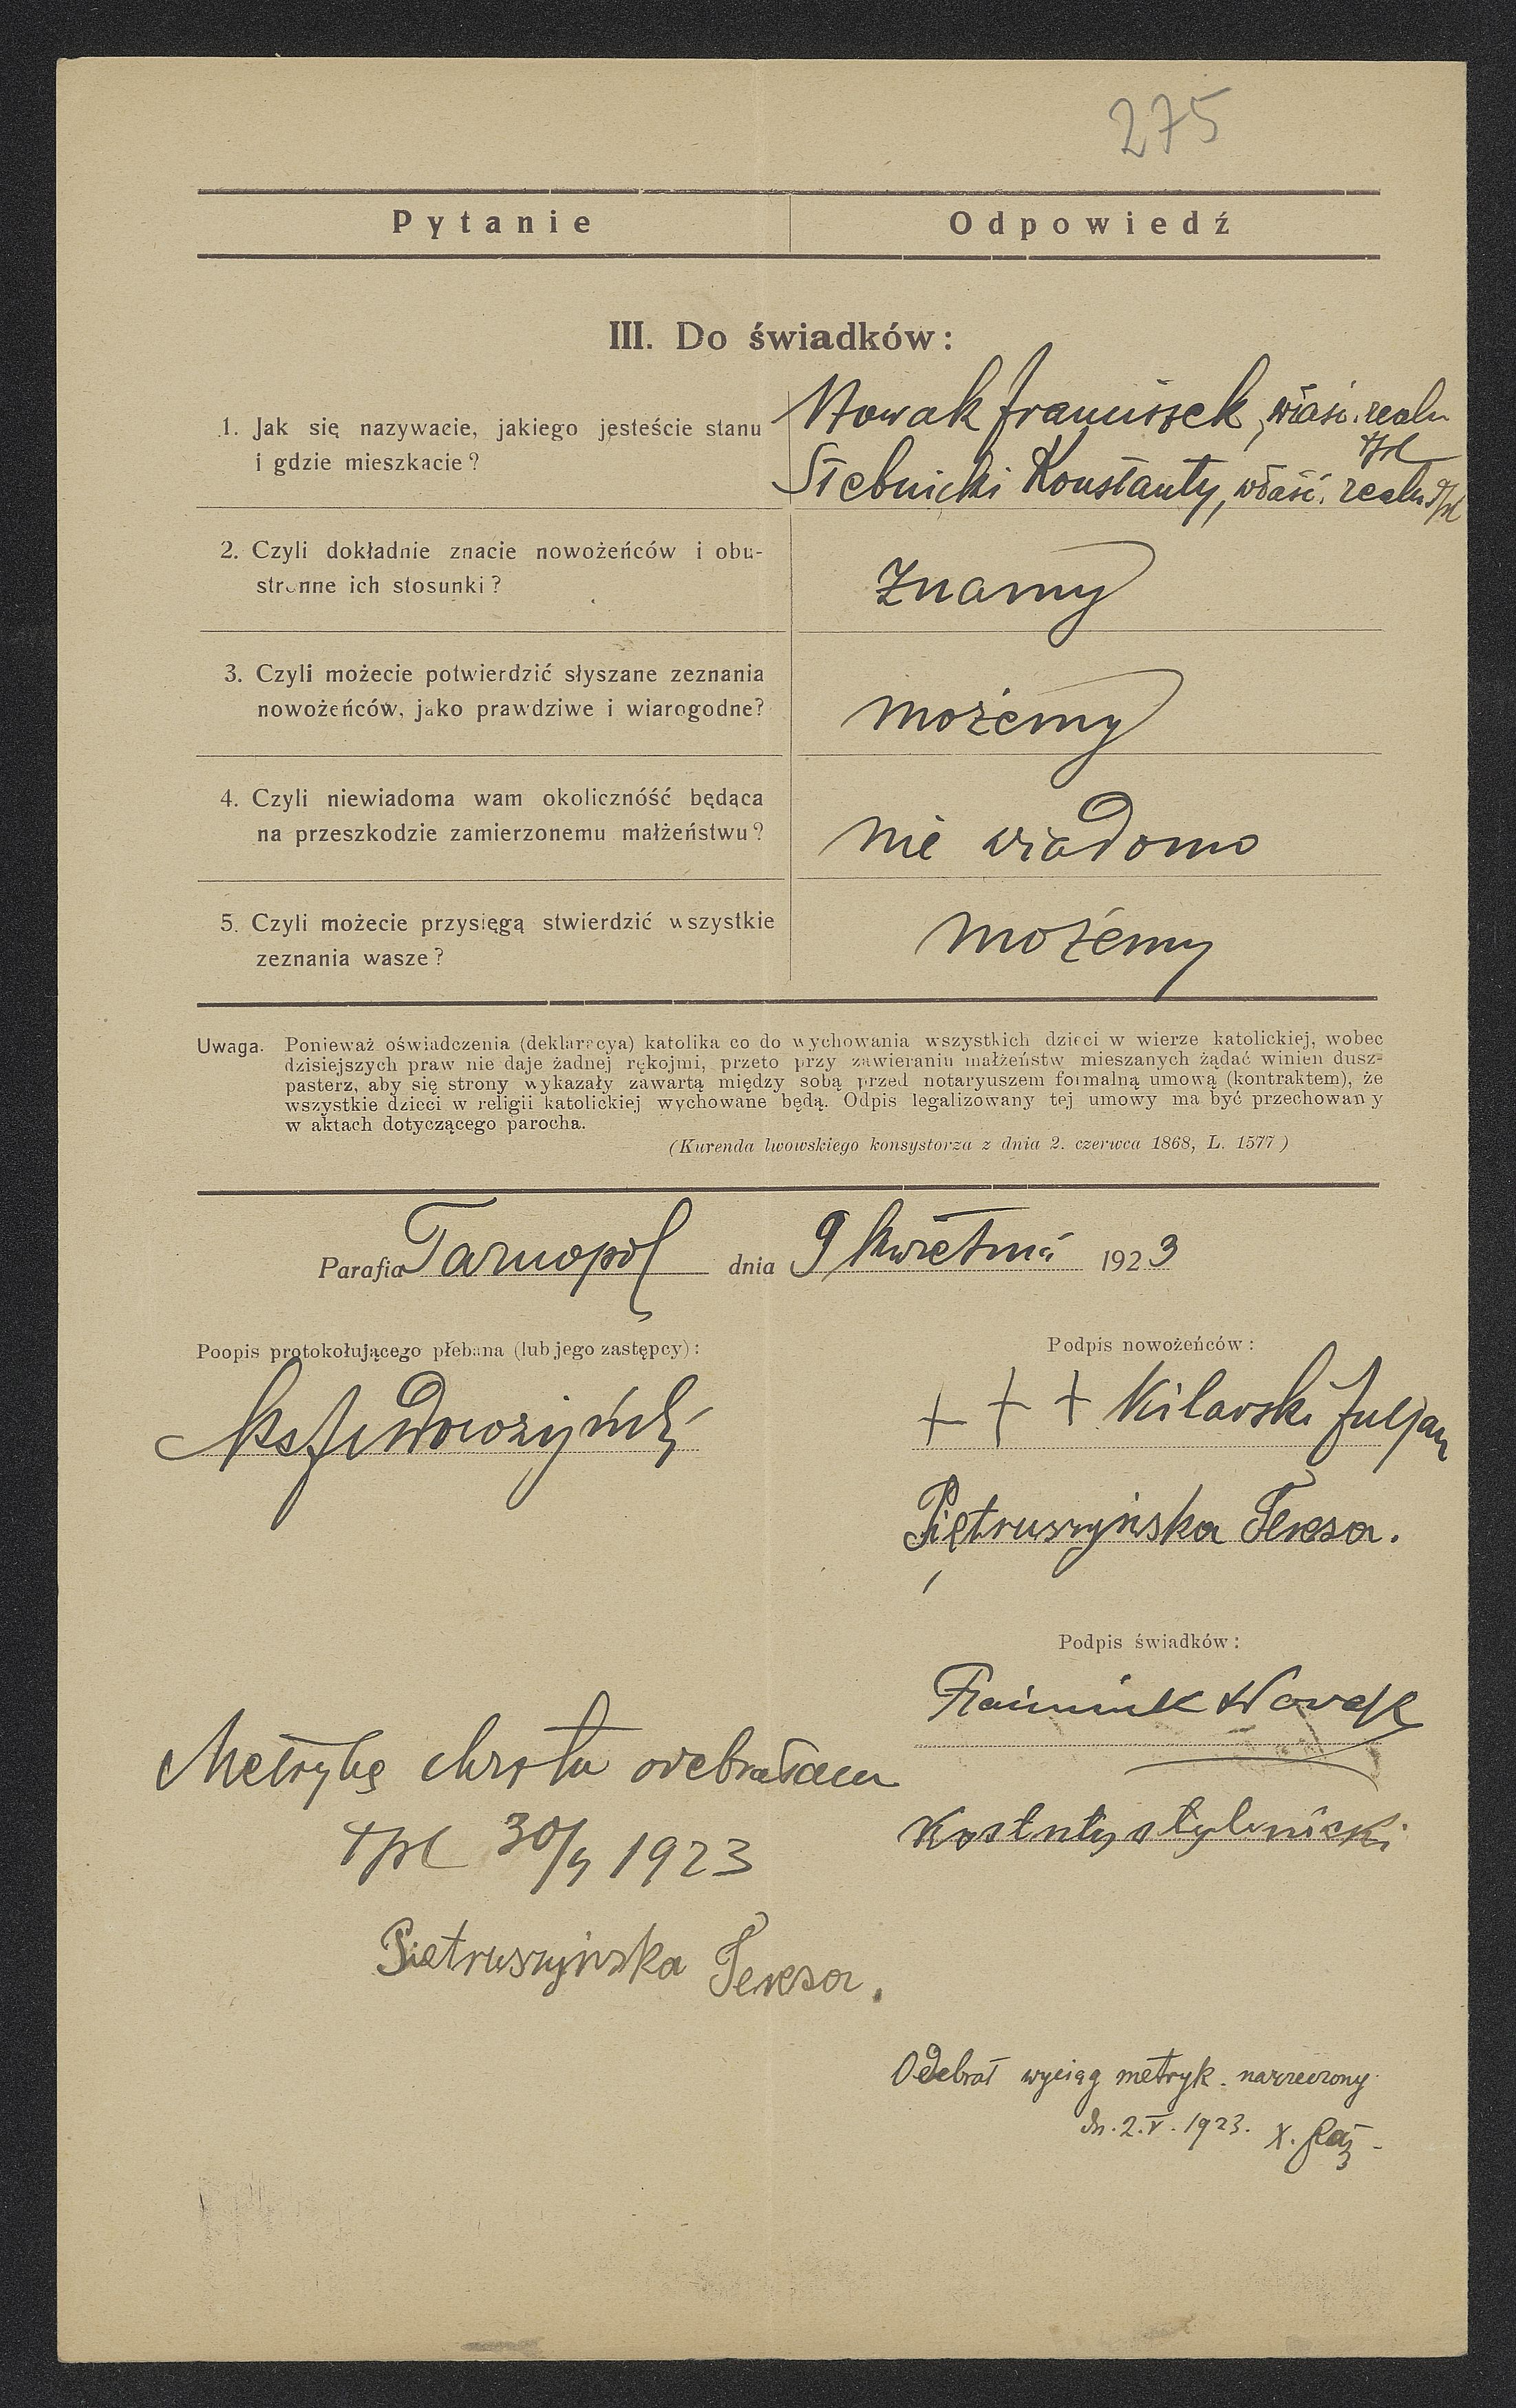 275
Pytanie
Odpowiedź
III. Do świadków:
1. Jak się nazywacie, jakiego jesteście stanu
i gdzie mieszkacie?
Nowak Franciszek, właśc. realn
Tpl
Stebnicki Konstanty, właść. realn Tpl
2. Czyli dokładnie znacie nowożeńców i obu-
stronne ich stosunki?
Znamy
3. Czyli możecie potwierdzić słyszane zeznania
nowożeńców, jako prawdziwe i wiarogodne?
możemy
4. Czyli niewiadoma wam okolicznóść będąca
na przeszkodzie zamierzonemu małżeństwu?
nie wiadomo
5. Czyli możecie przysięgą stwierdzić wszystkie
zeznania wasze?
możemy
Uwaga. Ponieważ oświadczenia (deklaracya) katolika co do wychowania wszystkich dzieci w wierze katolickiej, wobec
dzisiejszych praw nie daje żadnej rękojmi, przeto przy zawieraniu małżeństw mieszanych żądać winien dusz-
pasterz, aby się strony wykazały zawartą między sobą przed notaryuszem formalną umową (kontraktem), że
wszystkie dzieci w religii katolickiej wychowane będą. Odpis legalizowany tej umowy ma być przechowany
w aktach dotyczącego parocha.
(Kurenda lwowskiego konsystorza z dnia 2. czerwca 1868, L. 1577)
Parafia Tarnopol dnia 9 kwietnia 1923
Poopis protokołującego plebana (lub jego zastępcy):
Podpis nowożeńców:
+ + + Kilarski Juljan
Piętruszyńska Teresa.
Podpis świadków:
Nowak
Kostnty stybnicki
Metrykę chrztu odebrałam
Tpl 30/4 1923
Pietruszyńska Teresa.
Odebrał wyciąg metryk. narzeczony
dn. 2.V. 1923. X.